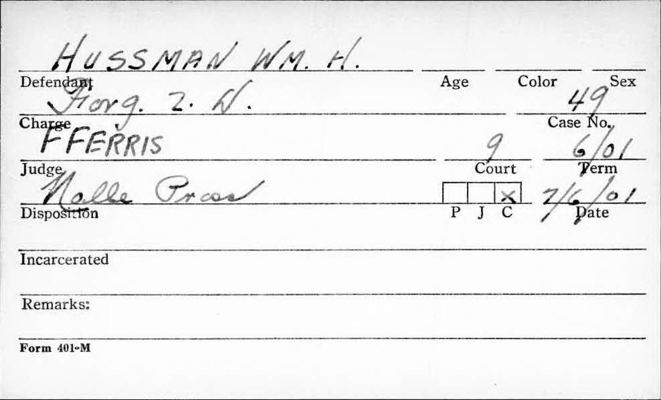 HUSSMAN WM. H.
Defendant Age Color Sex
Forg. 2. D. 49
Charge Case No.
FFERRIS 9 6/01
Judge Court Term
Nolle Pross x 7/6/01
Disposition P J C Date
Incarcerated
Remarks:
Form 401-M